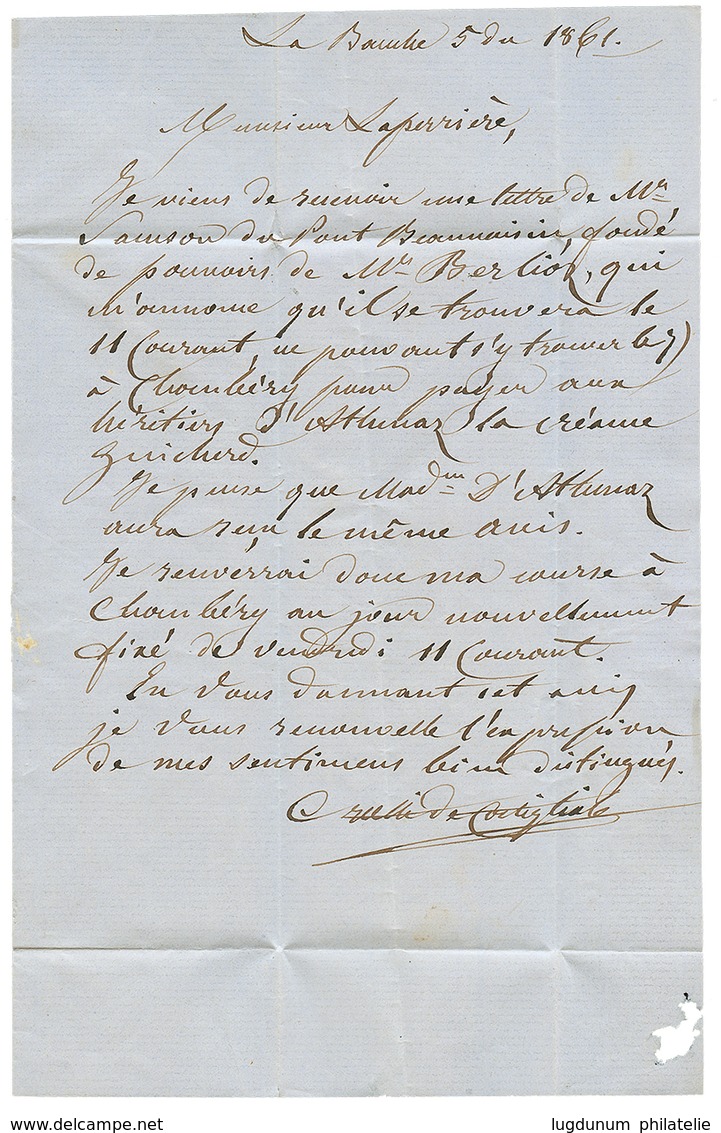 La Bauche 5 du 1861.
Monsieur Laperrière,
Je viens de recevoir une lettre de Mr
Samson du Pont Beauvoisin, fondé
de pouvoirs de Mr Berlioz, qui
m'annonce qu'il se trouvera le
11 Courant, ne pouvant s'y trouver le 7)
à Chambéry pour payer aux
héritiers D'Athenaz la créance
Guicherd.
Je pense que Madme D'Athenaz
aura reçu le même avis.
Je renverrai donc ma course à
Chambéry au jour nouvellement
fixé de vendredi 11 Courant.
En Vous donnant cet avis
je Vous renouvelle l'expression
de mes sentimens bien distingués.
Crotti de Costigliole
delcampe.net
lugdunum philatelie